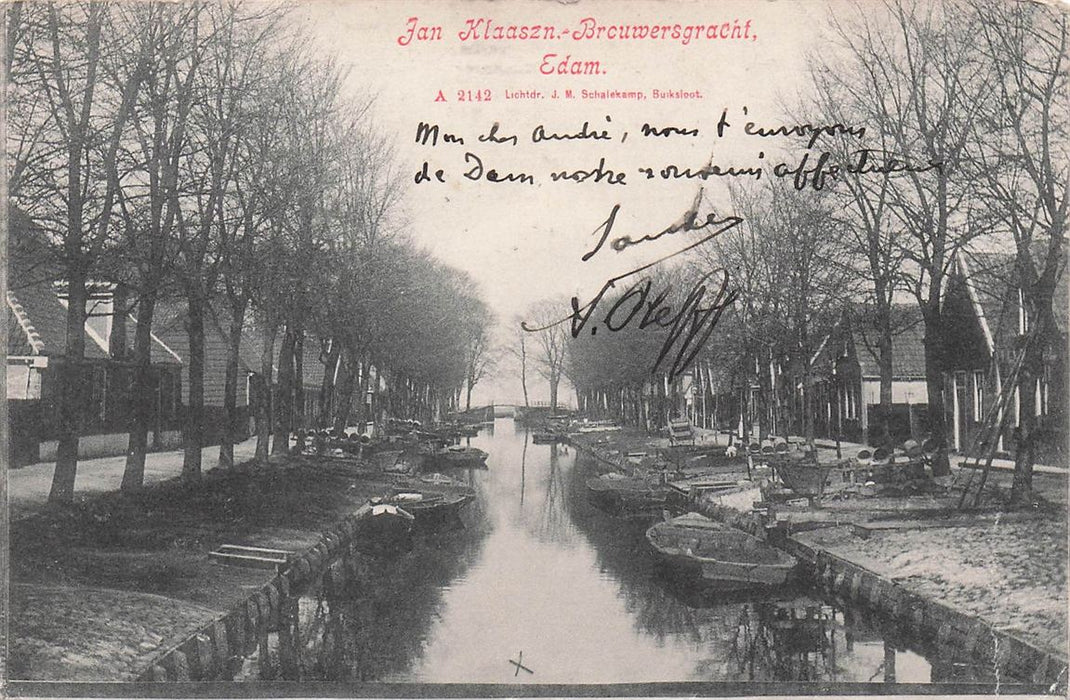 Jan Klaaszn.-Brouwersgracht,
Edam.
A 2142 Lichtdr. J. M. Schalekamp, Buiksloot.
Mon cher André, nous t'envoyons
de Dam notre souvenir affectueux